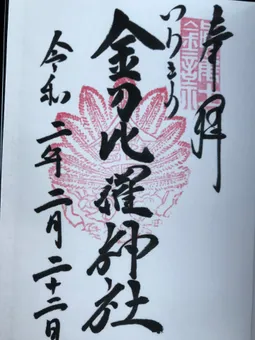 奉拝
金刀比羅神社
令和二年二月二十二日